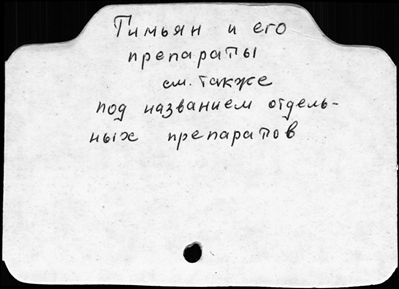 Тимьян и его
препараты
см. также
под названием отдель-
ных препаратов